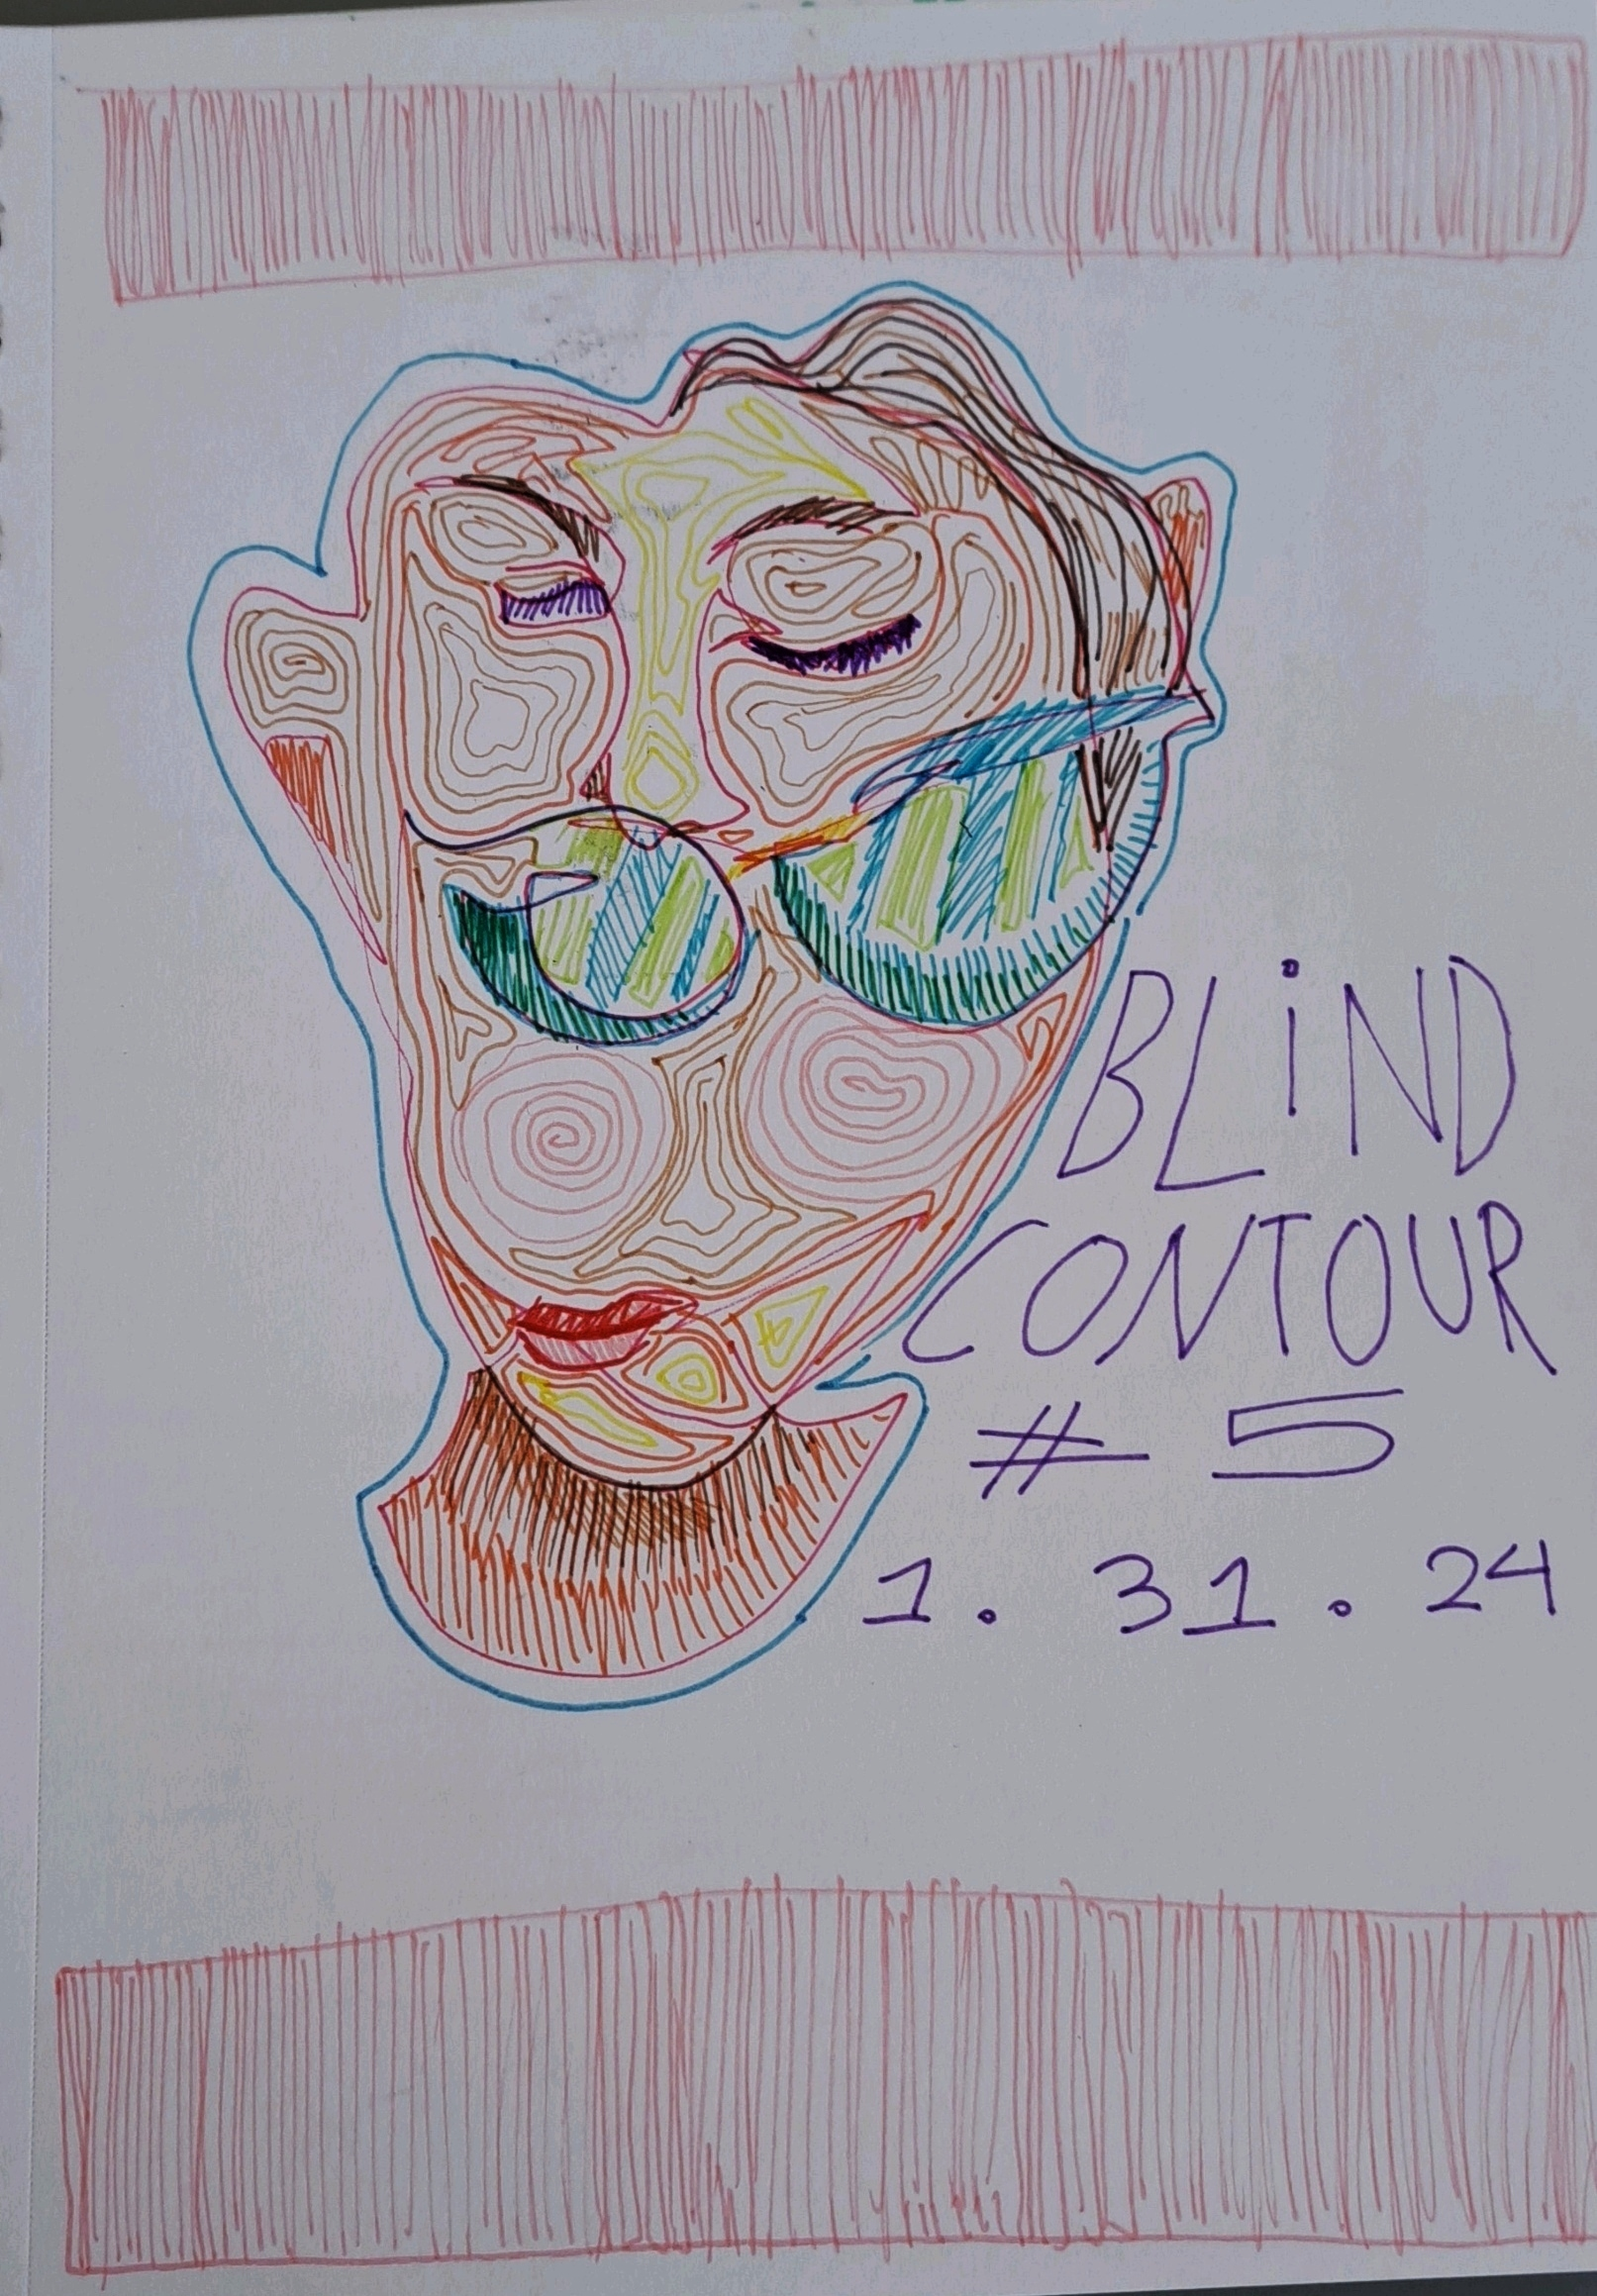 BLiND
CONTOUR
# 5
1. 31. 24